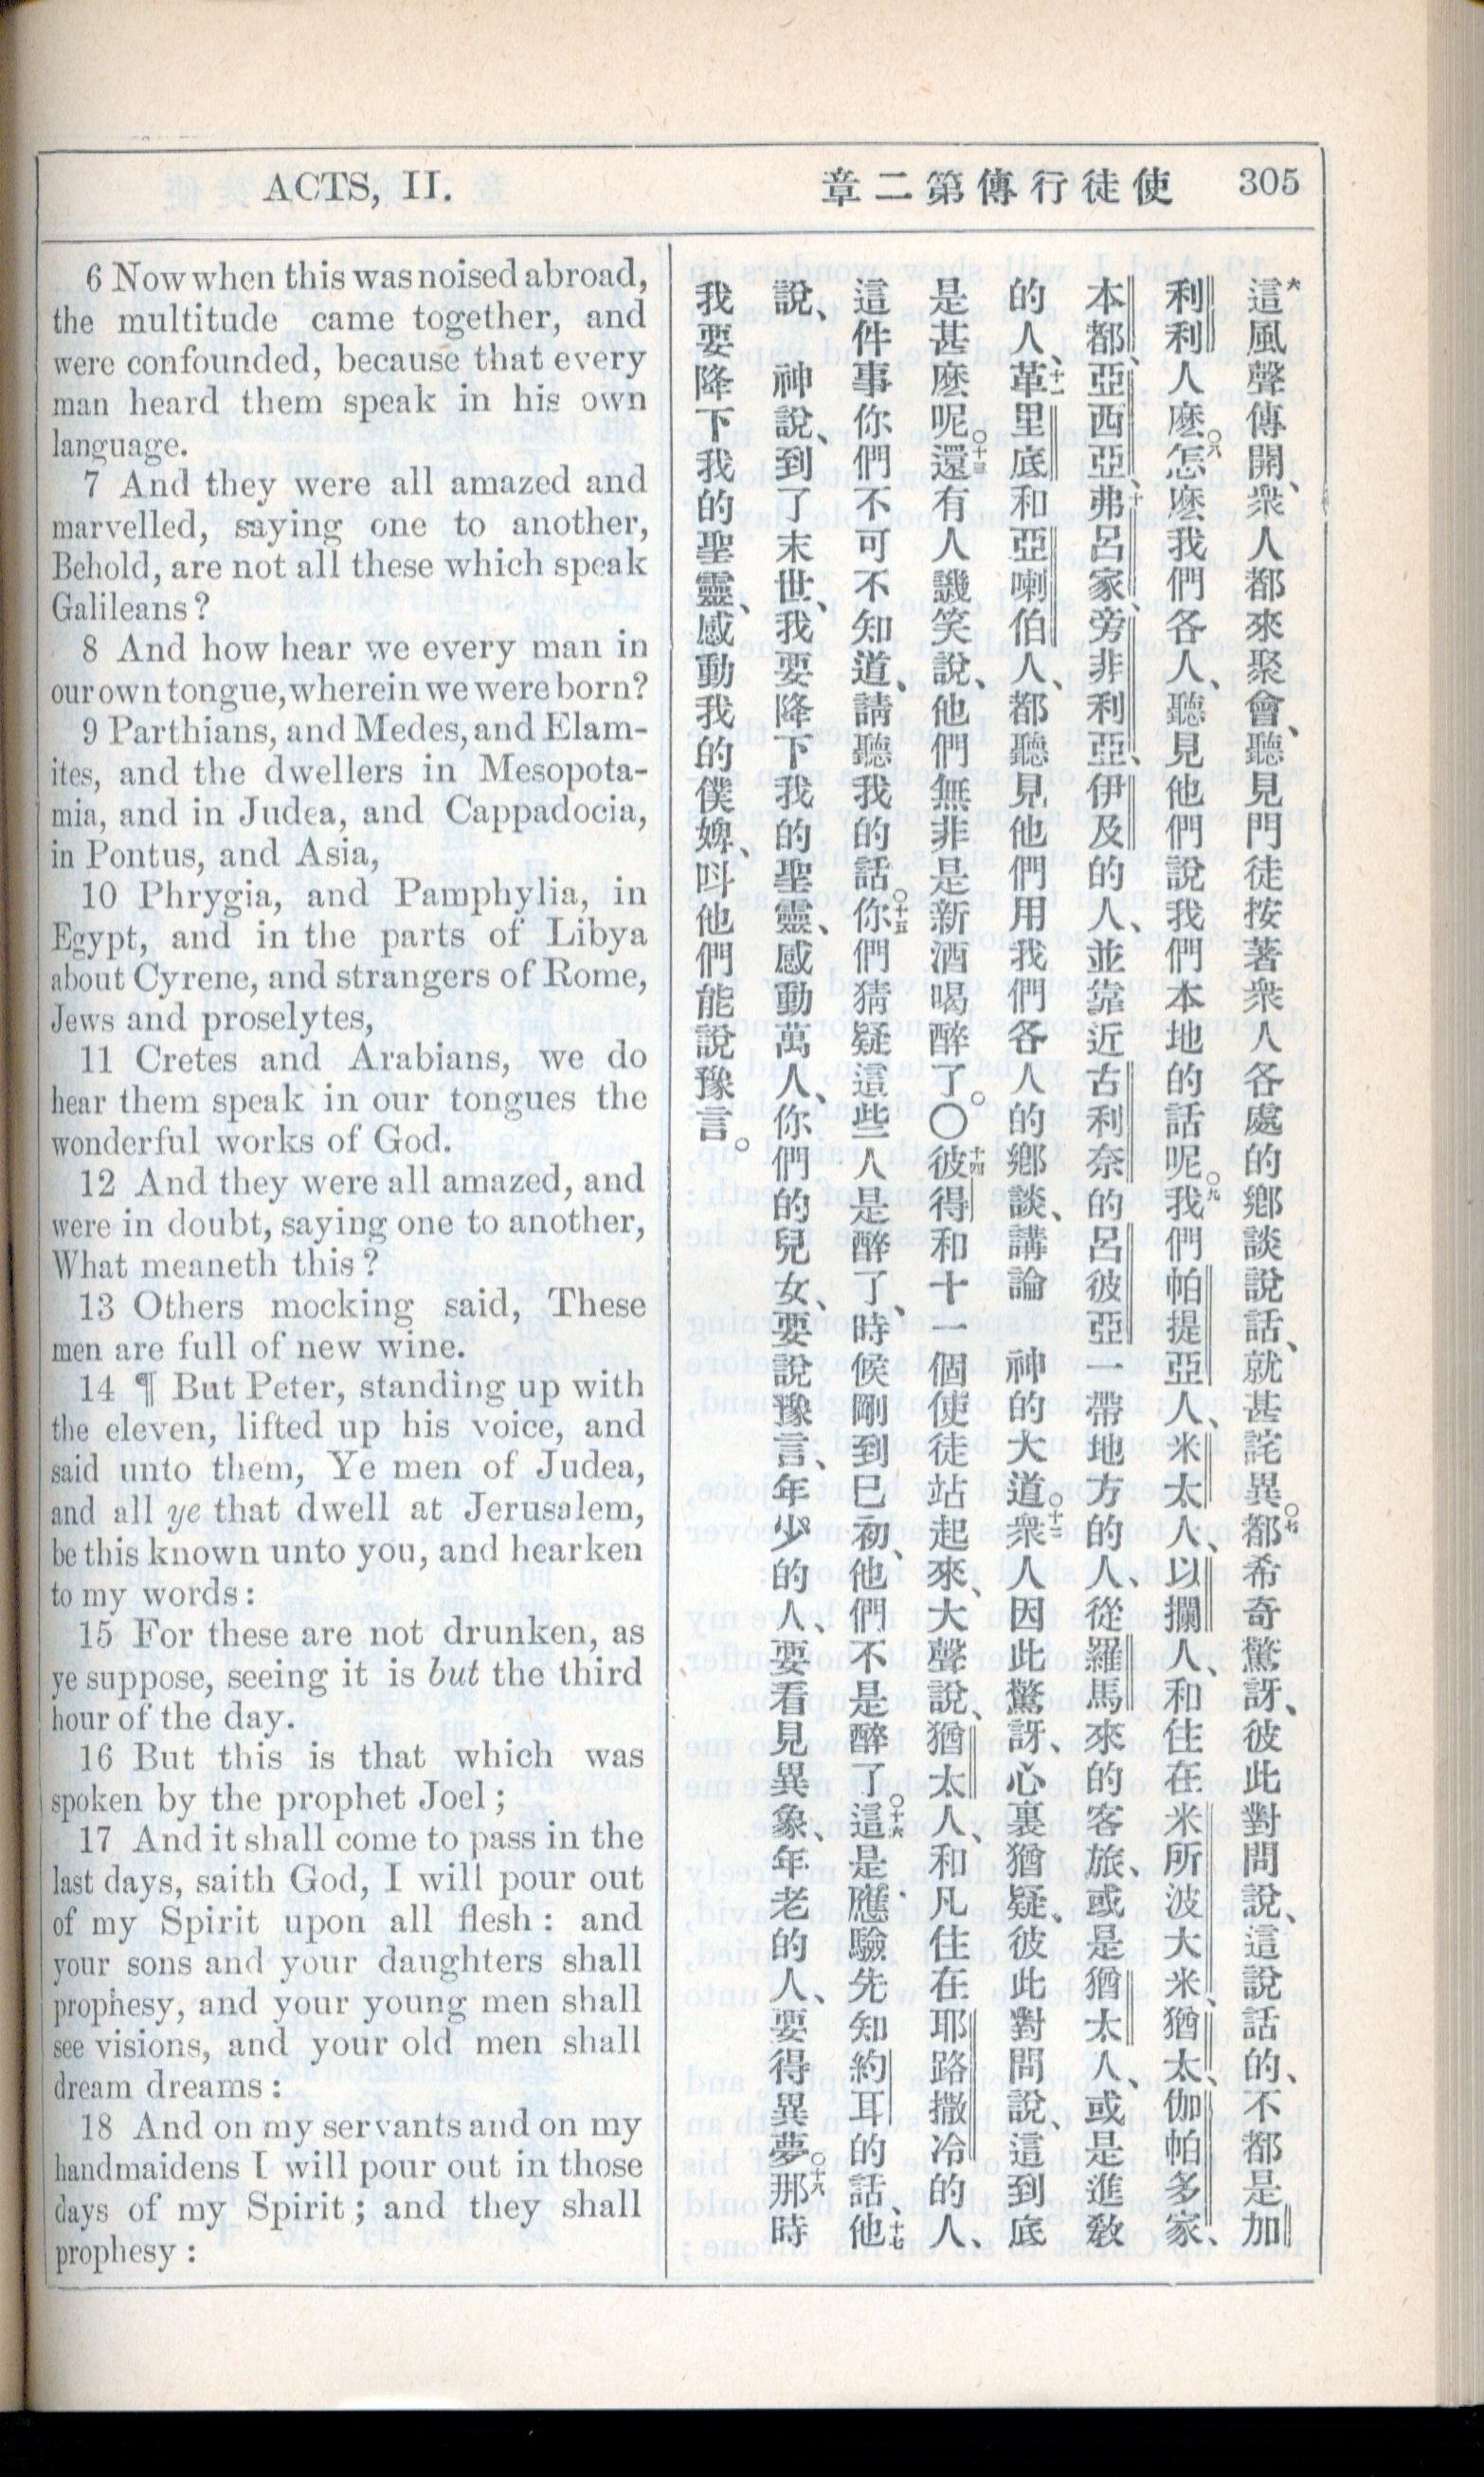 ACTS, II.
章二第傳行徒使
305
6 Now when this was noised abroad,
the multitude came together, and
were confounded, because that every
man heard them speak in his own
language.
7 And they were all amazed and
marvelled, saying one to another,
Behold, are not all these which speak
Galileans?
8 And how hear we every man in
our own tongue, wherein we were born?
9 Parthians, and Medes, and Elam-
ites, and the dwellers in Mesopota-
mia, and in Judea, and Cappadocia,
in Pontus, and Asia,
10 Phrygia, and Pamphylia, in
Egypt, and in the parts of Libya
about Cyrene, and strangers of Rome,
Jews and proselytes,
11 Cretes and Arabians, we do
hear them speak in our tongues the
wonderful works of God.
12 And they were all amazed, and
were in doubt, saying one to another,
What meaneth this?
13 Others mocking said, These
men are full of new wine.
14 ¶ But Peter, standing up with
the eleven, lifted up his voice, and
said unto them, Ye men of Judea,
and all ye that dwell at Jerusalem,
be this known unto you, and hearken
to my words:
15 For these are not drunken, as
ye suppose, seeing it is but the third
hour of the day.
16 But this is that which was
spoken by the prophet Joel;
17 And it shall come to pass in the
last days, saith God, I will pour out
of my Spirit upon all flesh: and
your sons and your daughters shall
prophesy, and your young men shall
see visions, and your old men shall
dream dreams:
18 And on my servants and on my
handmaidens I will pour out in those
days of my Spirit; and they shall
prophesy:
六這風聲傳開、衆人都來聚會、聽見門徒按著衆人各處的鄉談說話、就甚詫異。七都希奇驚訝、彼此對問說、這說話的、不都是加
利利人麽。八怎麽我們各人、聽見他們說我們本地的話呢。九我們帕提亞人、米太人、以攔人、和住在米所波大米、猶太、伽帕多家、
本都、亞西亞、十弗呂家、旁非利亞、伊及的人、並靠近古利奈的呂彼亞一帶地方的人、從羅馬來的客旅、或是猶太人、或是進敎
的人、十一革里底和亞喇伯人、都聽見他們用我們各人的鄉談、講論 神的大道。十二衆人因此驚訝、心裏猶疑、彼此對問說、這到底
是甚麽呢。十三還有人譏笑說、他們無非是新酒喝醉了。〇十四彼得和十一個使徒站起來、大聲說、猶太人、和凡住在耶路撒冷的人、
這件事你們不可不知道、請聽我的話。十五你們猜疑這些人是醉了、時候剛到巳初、他們不是醉了。十六這是應驗先知約耳的話、十七他
說、 神說、到了末世、我要降下我的聖靈、感動萬人、你們的兒女、要說豫言、年少的人、要看見異象、年老的人、要得異夢。十八那時
我要降下我的聖靈、感動我的僕婢、呌他們能說豫言。